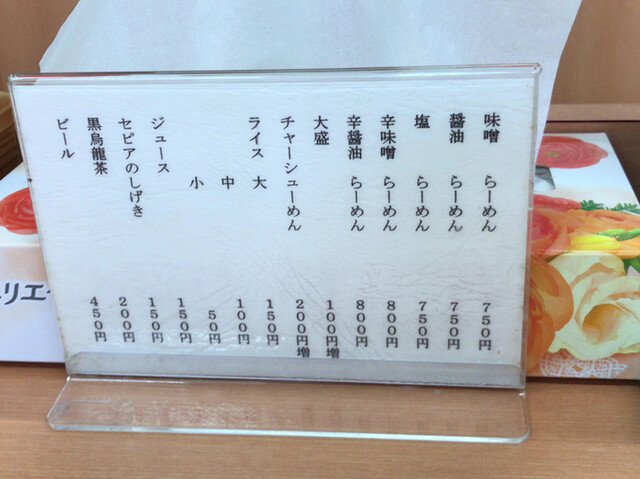 味噌 らーめん 750円
醤油 らーめん 750円
塩 らーめん 750円
辛味噌 らーめん 800円
辛醤油 らーめん 800円
大盛 100円増
チャーシューめん 200円増
ライス 大 150円
中 100円
小 50円
ジュース 150円
セピアのしげき 150円
黒烏龍茶 200円
ビール 450円
リエ